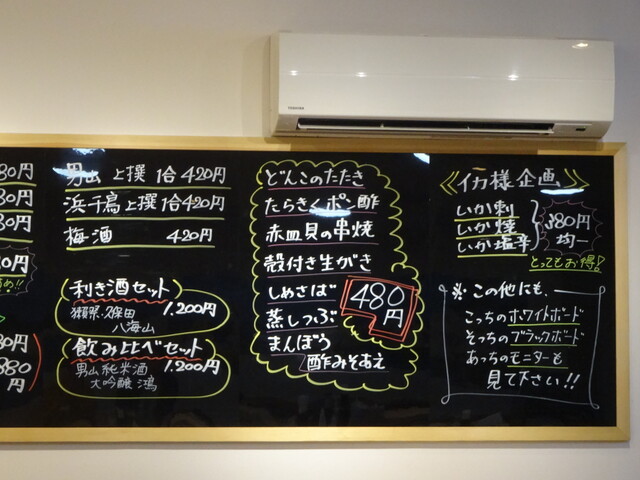 TOSHIBA
80円
80円
80円
0円
!!
80円
880
円
男山 上撰 1合 420円
浜千鳥 上撰 1合 420円
梅酒 420円
利き酒セット
1.200円
獺祭.久保田
八海山
飲み比べセット
1.200円
男山 純米酒
大吟醸 鴻
どんこのたたき
たらきくポン酢
赤皿貝の串焼
殻付き生がき
しめさば
蒸しつぶ
まんぼう
酢みそあえ
480
円
《イカ様企画》
いか刺
いか焼
いか塩辛
380円
均一
とってもお得!
※ この他にも、
こっちのホワイトボード
そっちのブラックボード
あっちのモニターも
見て下さい!!